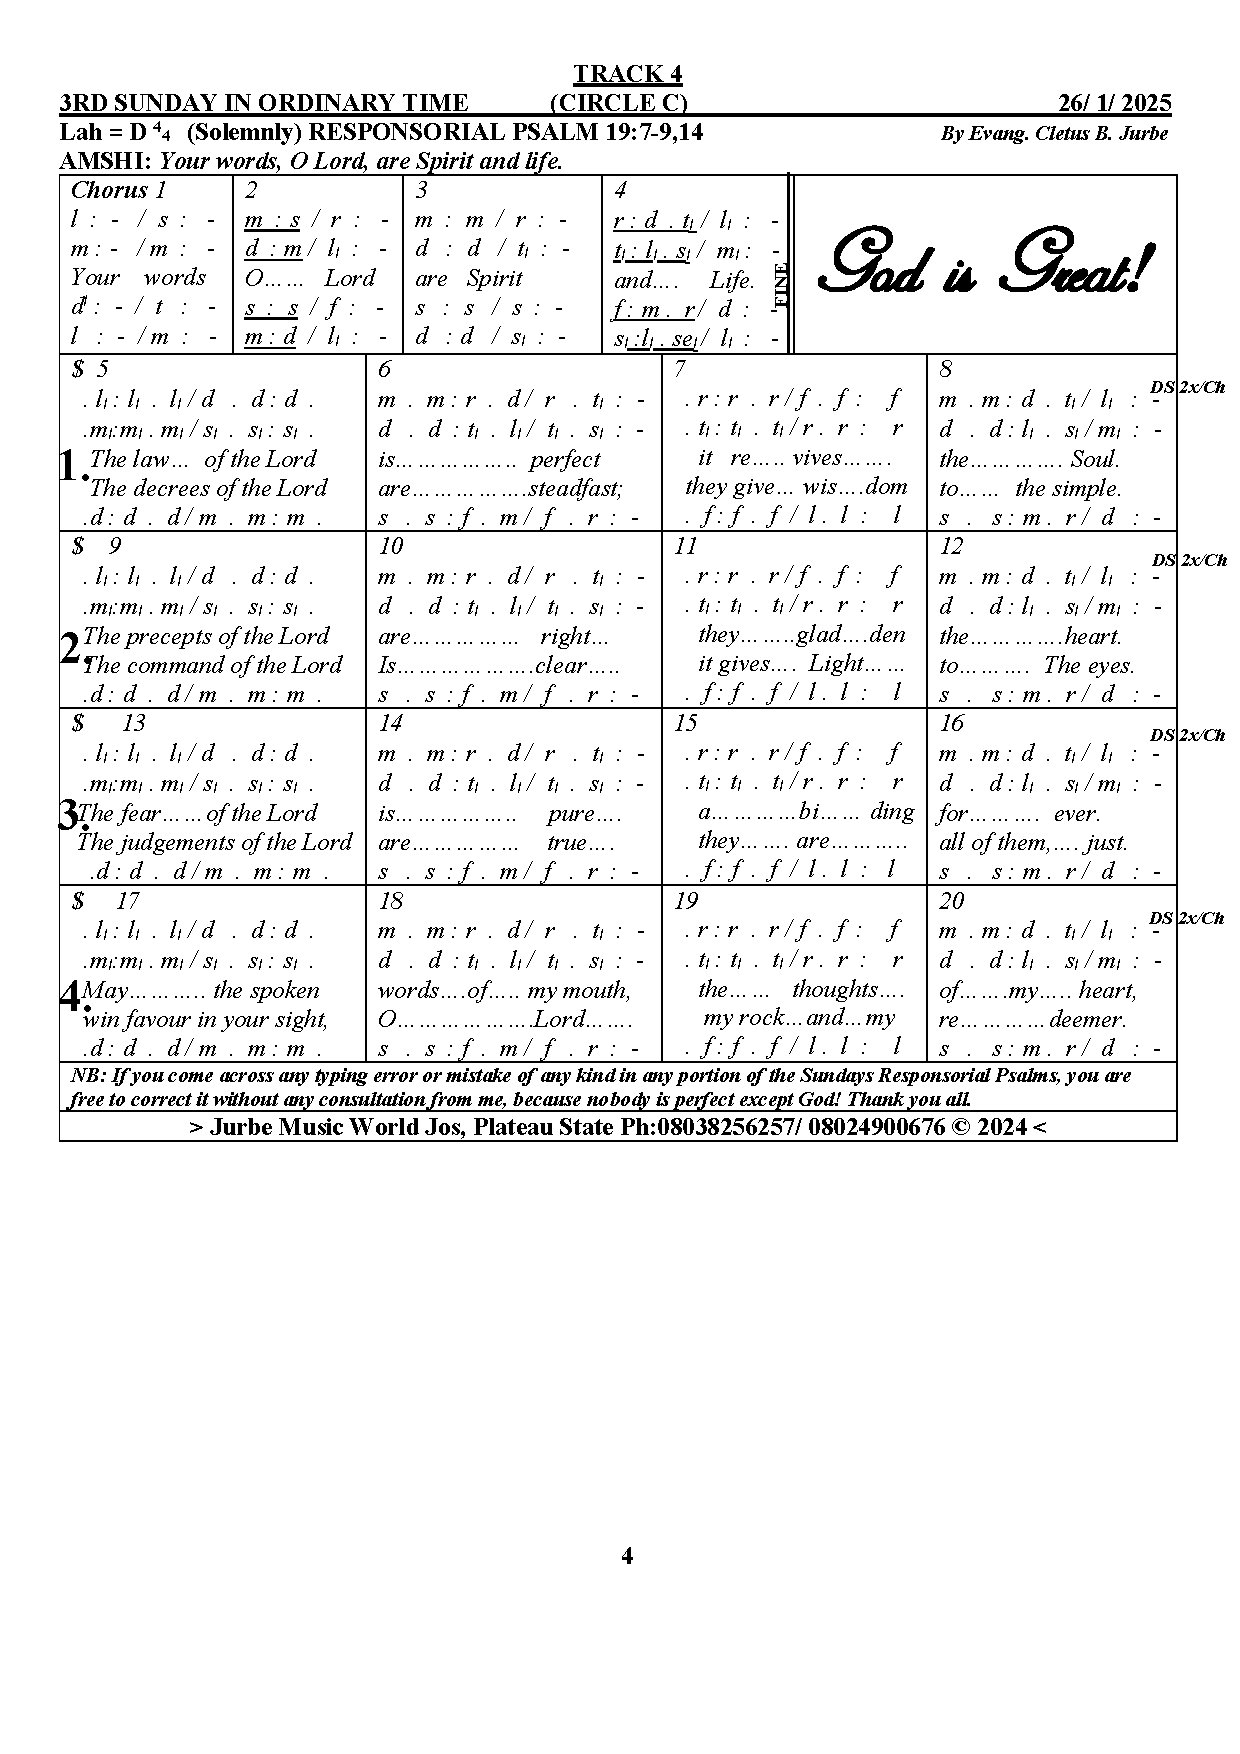 TRACK 4
3RD SUNDAY IN ORDINARY TIME (CIRCLE C) 26/ 1/ 2025
Lah = D ⁴₄ (Solemnly) RESPONSORIAL PSALM 19:7-9,14 By Evang. Cletus B. Jurbe
AMSHI: Your words, O Lord, are Spirit and life.
Chorus 1 2 3 4
l : - / s : - m : s / r : - m : m / r : - r : d . tˌ / lˌ : -
m : - / m : - d : m / lˌ : - d : d / tˌ : - tˌ : lˌ . sˌ / mˌ : -
Your words O…… Lord are Spirit and…. Life.
d' : - / t : - s : s / f : - s : s / s : - f : m . r / d : -
l : - / m : - m : d / lˌ : - d : d / sˌ : - sˌ : lˌ . seˌ / lˌ : -
FINE
God is Great!
$ 5 6 7 8
DS 2x/Ch
. lˌ : lˌ . lˌ / d . d : d . m . m : r . d / r . tˌ : - . r : r . r / f . f : f m . m : d . tˌ / lˌ : -
. mˌ : mˌ . mˌ / sˌ . sˌ : sˌ . d . d : tˌ . lˌ / tˌ . sˌ : - . tˌ : tˌ . tˌ / r . r : r d . d : lˌ . sˌ / mˌ : -
1. The law… of the Lord is…………….. perfect it re….. vives……. the…………. Soul.
The decrees of the Lord are…………….steadfast; they give… wis….dom to…… the simple.
. d : d . d / m . m : m . s . s : f . m / f . r : - . f : f . f / l . l : l s . s : m . r / d : -
$ 9 10 11 12
DS 2x/Ch
. lˌ : lˌ . lˌ / d . d : d . m . m : r . d / r . tˌ : - . r : r . r / f . f : f m . m : d . tˌ / lˌ : -
. mˌ : mˌ . mˌ / sˌ . sˌ : sˌ . d . d : tˌ . lˌ / tˌ . sˌ : - . tˌ : tˌ . tˌ / r . r : r d . d : lˌ . sˌ / mˌ : -
2. The precepts of the Lord are…………… right… they……..glad….den the………….heart.
The command of the Lord Is……………….clear….. it gives…. Light…… to………. The eyes.
. d : d . d / m . m : m . s . s : f . m / f . r : - . f : f . f / l . l : l s . s : m . r / d : -
$ 13 14 15 16
DS 2x/Ch
. lˌ : lˌ . lˌ / d . d : d . m . m : r . d / r . tˌ : - . r : r . r / f . f : f m . m : d . tˌ / lˌ : -
. mˌ : mˌ . mˌ / sˌ . sˌ : sˌ . d . d : tˌ . lˌ / tˌ . sˌ : - . tˌ : tˌ . tˌ / r . r : r d . d : lˌ . sˌ / mˌ : -
3. The fear……of the Lord is…………….. pure…. a…………bi…… ding for………. ever.
The judgements of the Lord are…………… true…. they……. are……….. all of them,…. just.
. d : d . d / m . m : m . s . s : f . m / f . r : - . f : f . f / l . l : l s . s : m . r / d : -
$ 17 18 19 20
DS 2x/Ch
. lˌ : lˌ . lˌ / d . d : d . m . m : r . d / r . tˌ : - . r : r . r / f . f : f m . m : d . tˌ / lˌ : -
. mˌ : mˌ . mˌ / sˌ . sˌ : sˌ . d . d : tˌ . lˌ / tˌ . sˌ : - . tˌ : tˌ . tˌ / r . r : r d . d : lˌ . sˌ / mˌ : -
4. May……….. the spoken words….of….. my mouth, the…… thoughts…. of…….my….. heart,
win favour in your sight, O……………….Lord……. my rock…and…my re…………deemer.
. d : d . d / m . m : m . s . s : f . m / f . r : - . f : f . f / l . l : l s . s : m . r / d : -
NB: If you come across any typing error or mistake of any kind in any portion of the Sundays Responsorial Psalms, you are
free to correct it without any consultation from me, because nobody is perfect except God! Thank you all.
> Jurbe Music World Jos, Plateau State Ph:08038256257/ 08024900676 © 2024 <
4